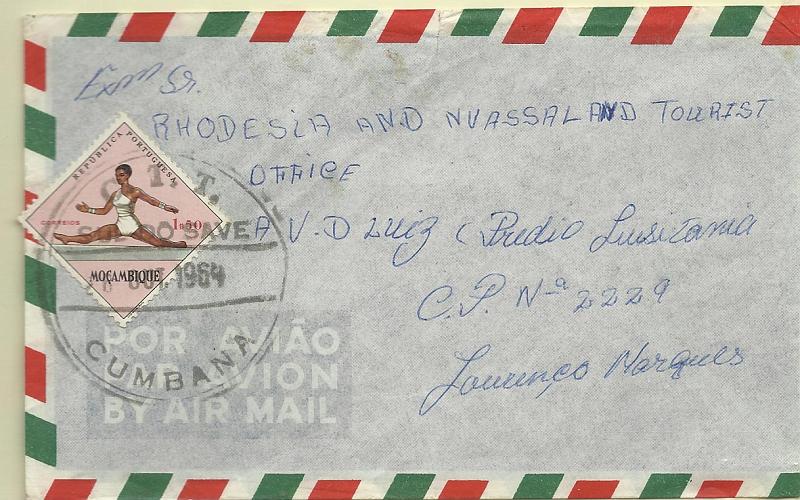 Exmº Sr.
RHODESIA AND NYASSALAND TOURIST
OFFICE
AV. D LUIZ (Predio Lusitania
C.P. Nº 2229
Lourenço Marques
REPUBLICA PORTUGUESA
CORREIOS
1$50
MOÇAMBIQUE
C.T.T.
SUL DO SAVE
OUT. 1964
CUMBANA
POR AVIÃO
PAR AVION
BY AIR MAIL